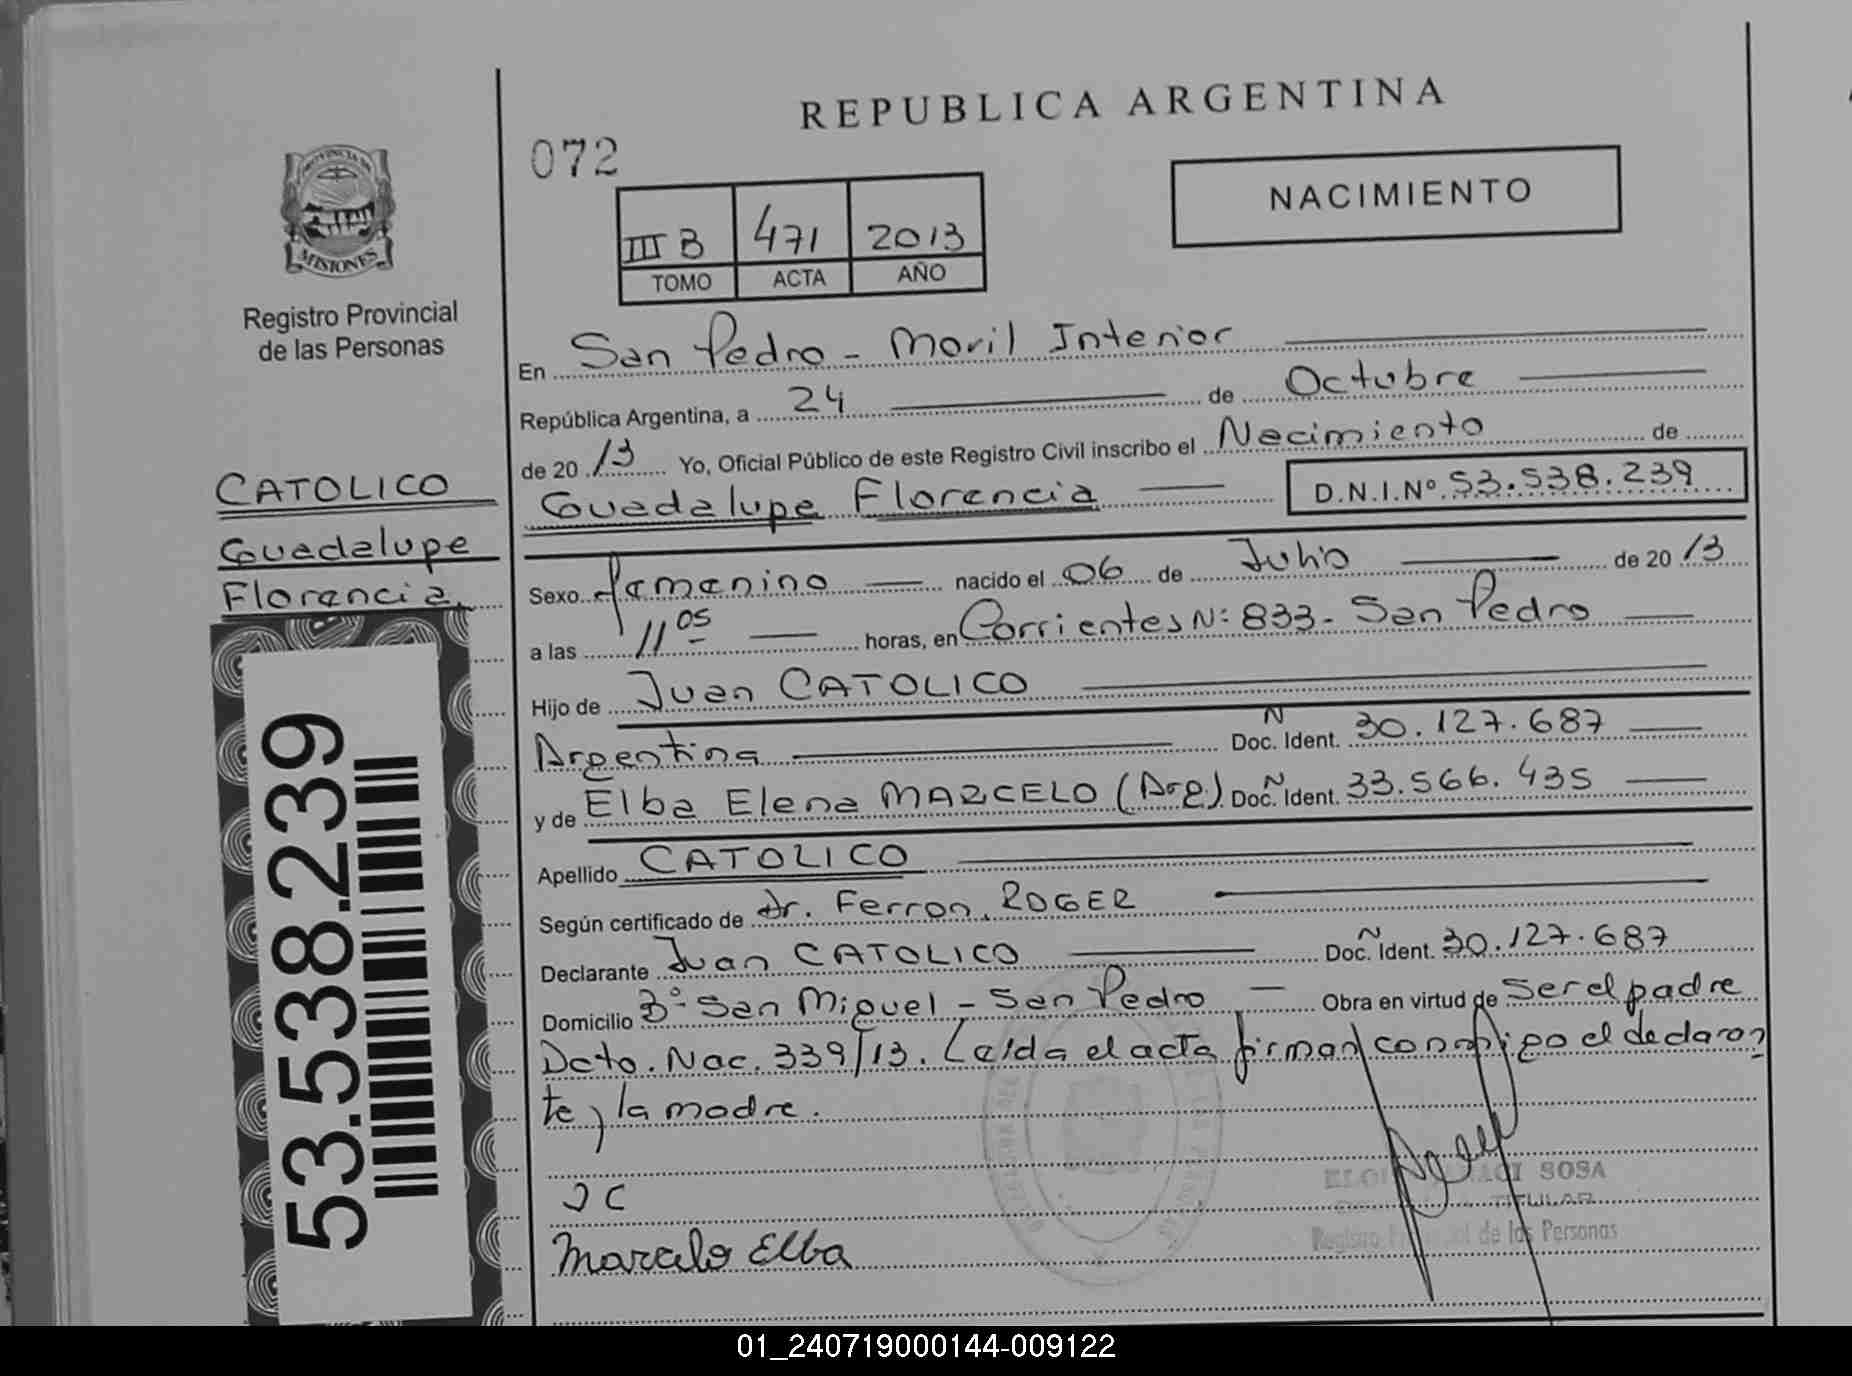 REPUBLICA ARGENTINA
072
NACIMIENTO
PROVINCIA DE
MISIONES
Registro Provincial
de las Personas
III B 471 2013
TOMO ACTA AÑO
En San Pedro - Movil Interior
República Argentina, a 24 de Octubre
de 2013 Yo, Oficial Público de este Registro Civil inscribo el Nacimiento de
Guadalupe Florencia D.N.I.Nº 53.538.239
CATOLICO
Guadalupe
Florencia
53.538.239
Sexo femenino nacido el 06 de Julio de 2013
a las 11 05 horas, en Corrientes Nº 833 - San Pedro
Hijo de Juan CATOLICO
Argentina Doc. Ident. N 30.127.687
y de Elba Elena MARCELO (Arg). Doc. Ident. N 33.566.435
Apellido CATOLICO
Según certificado de Dr. Ferron, ROGER
Declarante Juan CATOLICO Doc. Ident. N 30.127.687
Domicilio Bº San Miguel - San Pedro Obra en virtud de ser el padre
Dcto. Nac. 339/13. Leida el acta firman conmigo el declaran
te y la madre.
JC
Marcelo Elba
SOSA
TITULAR
Registro de las Personas
01_240719000144-009122